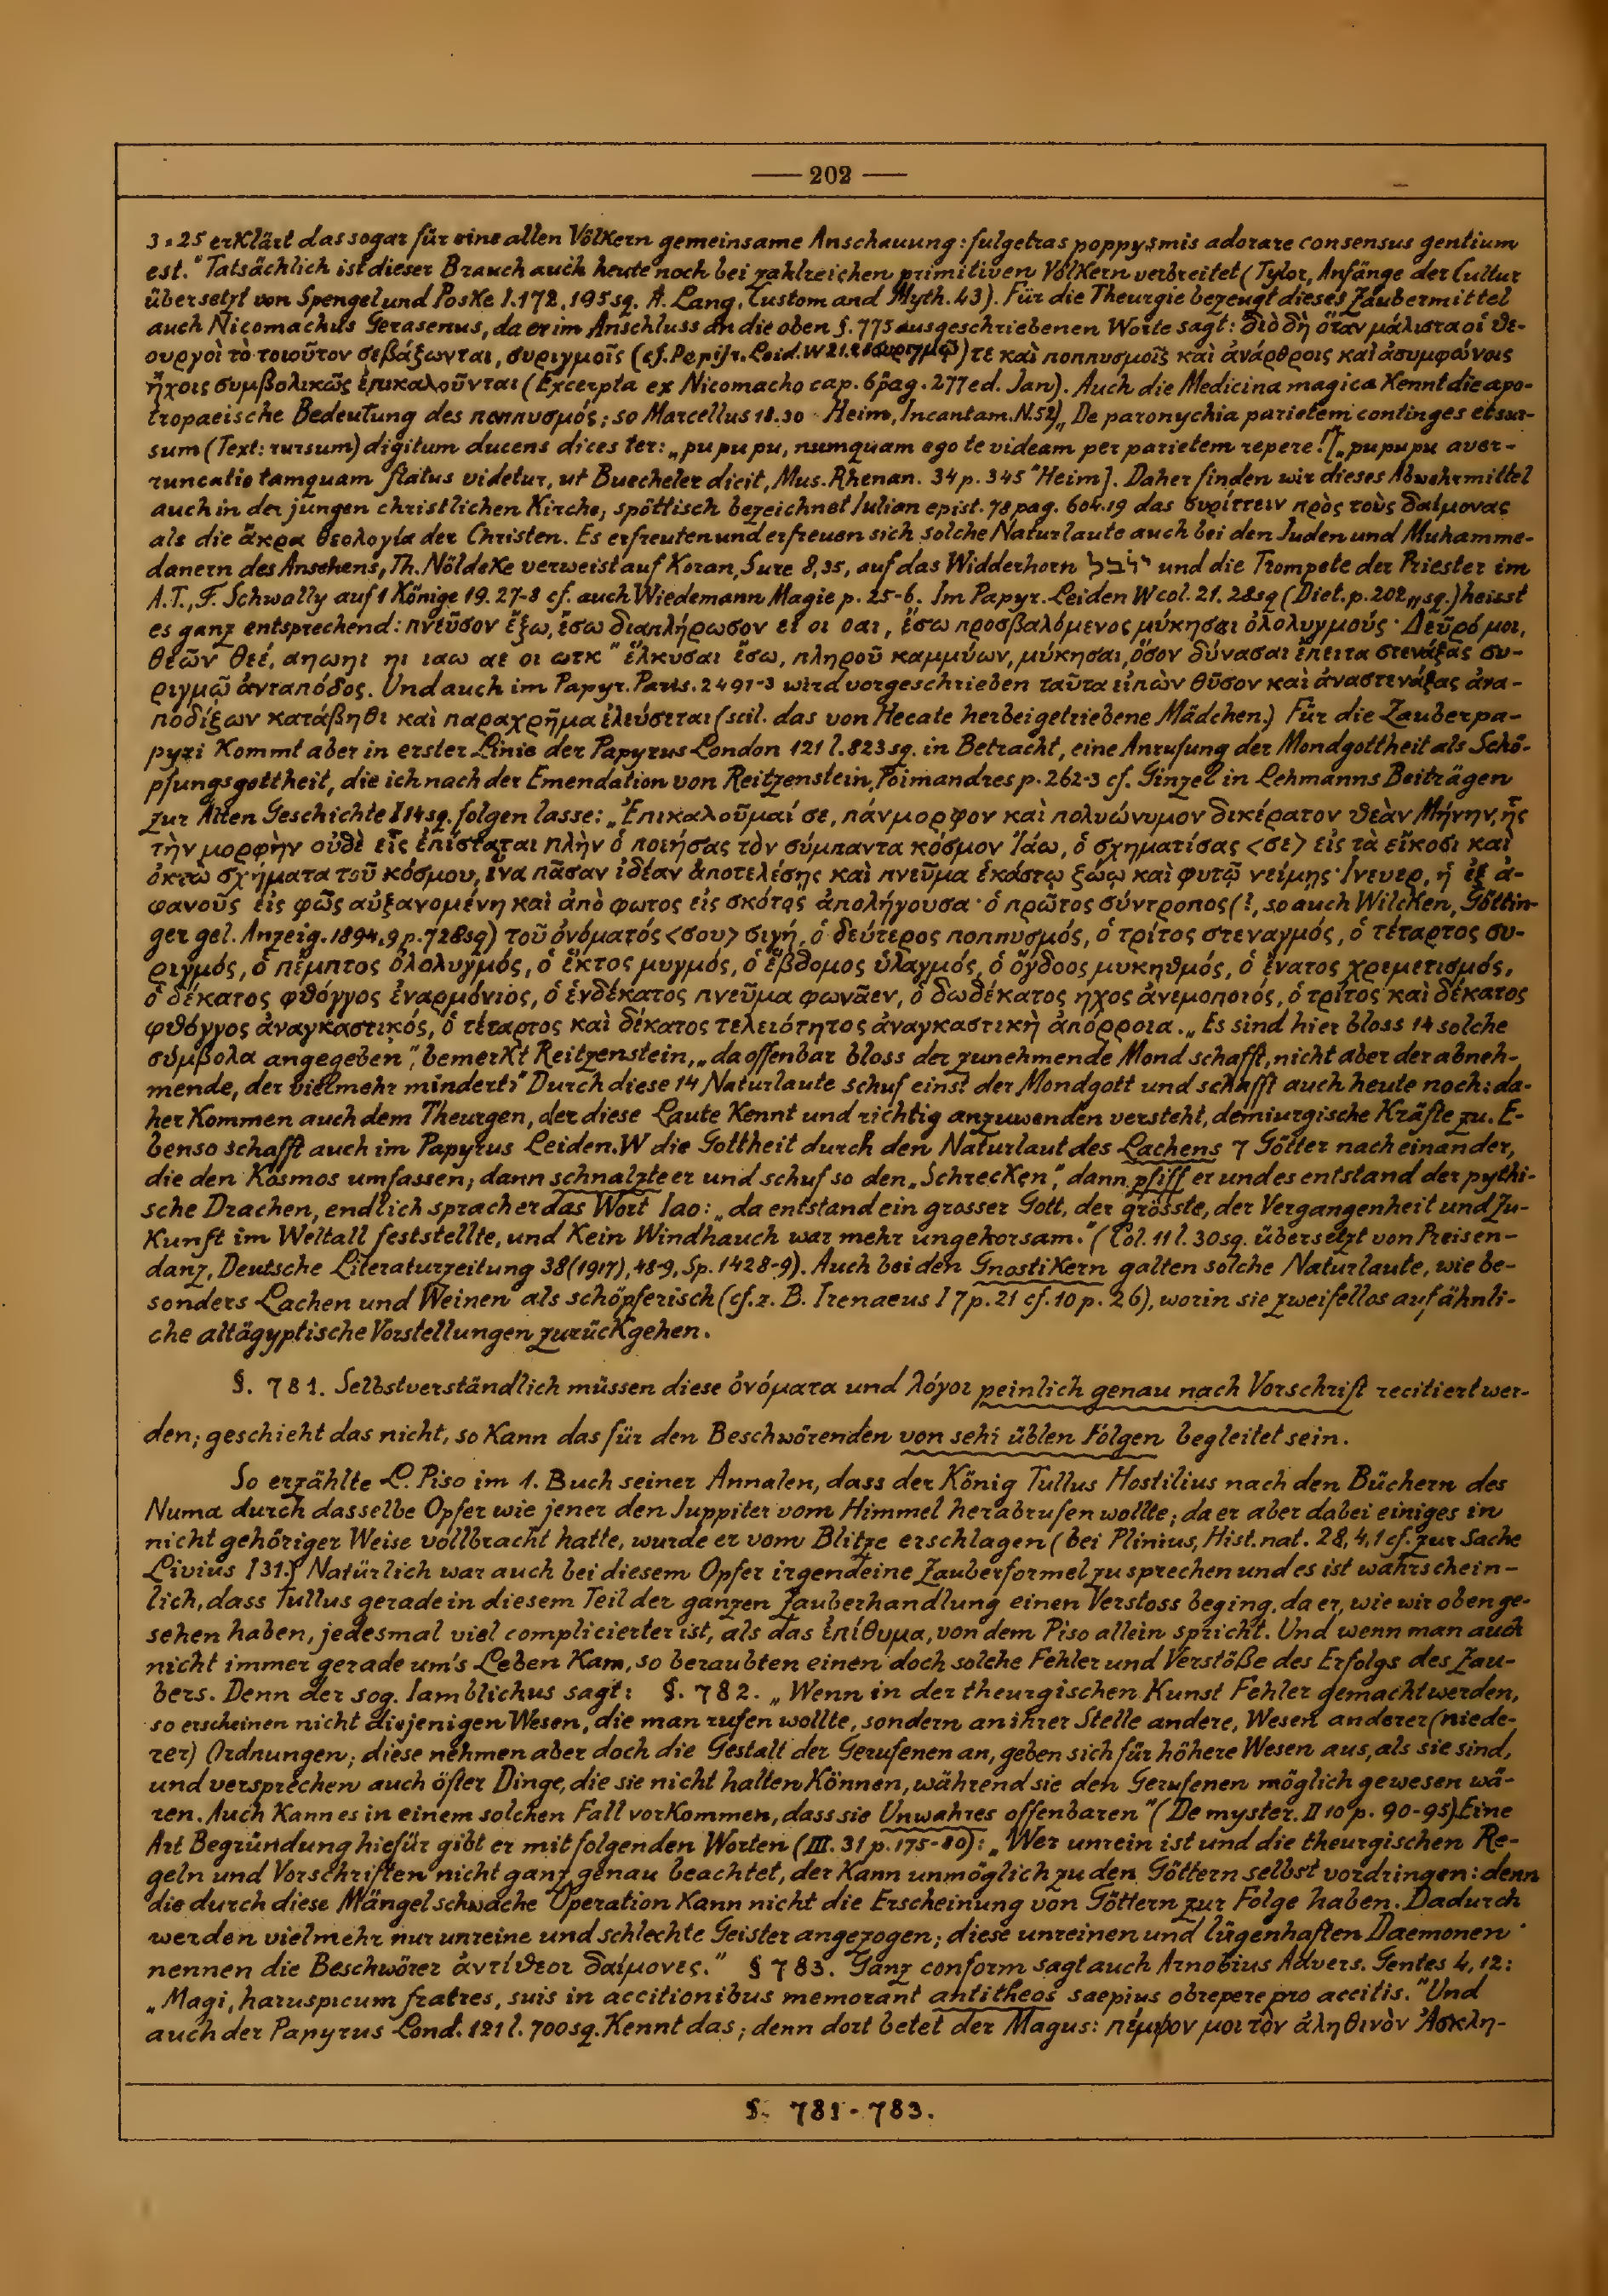 — 202 —
3•25 erklärt das sogar für eine allen Völkern gemeinsame Anschauung: fulgetras poppysmis adorare consensus gentium
est." Tatsächlich ist dieser Brauch auch heute noch bei zahlreichen primitiven Völkern verbreitet (Tylor, Anfänge der Cultur
übersetzt von Spengel und Poske I.172, 195sq. A. Lang, Custom and Myth. 43). Für die Theurgie bezeugt dieses Zaubermittel
auch Nicomachus Gerasenus, da er im Anschluss an die oben §. 775 ausgeschriebenen Worte sagt: διὸ δὴ ὅταν μάλιστα οἱ θε-
ουργοὶ τὸ τοιοῦτον σεβάζωνται, συριγμοῖς (cf. Papyr. Leid. W 21. συριγμῷ) τε καὶ ποππυσμοῖς καὶ ἀνάρθροις καὶ ἀσυμφώνοις
ἤχοις συμβολικῶς ἐπικαλοῦνται (Excerpta ex Nicomacho cap. 6 pag. 277 ed. Jan). Auch die Medicina magica kennt die apo-
tropaeische Bedeutung des ποππυσμός; so Marcellus 18.30 Heim, Incantam. N.52) „De paronychia parietem continges et sur-
sum (Text: rursum) digitum ducens dices ter: „pu pu pu, numquam ego te videam per parietem repere! [„pupupu aver-
runcatio tamquam flatus videtur, ut Buecheler dicit, Mus. Rhenan. 34 p. 345" Heim]. Daher finden wir dieses Abwehrmittel
auch in der jungen christlichen Kirche; spöttisch bezeichnet Iulian epist. 78 pag. 604.19 das συρίττειν πρὸς τοὺς δαίμονας
als die ἄκρα θεολογία der Christen. Es erfreuten und erfreuen sich solche Naturlaute auch bei den Juden und Muhamme-
danern des Ansehens, Th. Nöldeke verweist auf Koran, Sure 8,35, auf das Widderhorn יובל und die Trompete der Priester im
A.T., F. Schwally auf 1 Könige 19. 27-8 cf. auch Wiedemann Magie p. 25-6. Im Papyr. Leiden W col. 21. 28sq (Diet. p. 202,, sq.) heisst
es ganz entsprechend: πνεῦσον ἔξω, ἔσω διαπλήρωσον ει οι οαι, ἔσω προσβαλόμενος μύκησαι ὀλολυγμούς· Δεῦρό μοι,
θεῶν θεέ, αηωηι ηι ιαω αε οι ωτκ" ἕλκυσαι ἔσω, πληροῦ καμμύων, μύκησαι, ὅσον δύνασαι ἔπειτα στενάξας συ-
ριγμῷ ἀνταπόδος. Und auch im Papyr. Paris. 2491-3 wird vorgeschrieben ταῦτα εἰπὼν θῦσον καὶ ἀναστενάξας ἀνα-
ποδίζων κατάβηθι καὶ παραχρῆμα ἐλεύσεται (scil. das von Hecate herbeigetriebene Mädchen.) Für die Zauberpa-
pyri kommt aber in erster Linie der Papyrus London 121 l. 823 sq. in Betracht, eine Anrufung der Mondgottheit als Schö-
pfungsgottheit, die ich nach der Emendation von Reitzenstein, Poimandres p. 262-3 cf. Ginzel in Lehmanns Beiträgen
zur Alten Geschichte I 14 sq. folgen lasse: „Ἐπικαλοῦμαί σε, πάνμορφον καὶ πολυώνυμον δικέρατον θεὰν Μήνην, ἧς
τὴν μορφὴν οὐδὲ εἷς ἐπίσταται πλὴν ὁ ποιήσας τὸν σύμπαντα κόσμον Ἰάω, ὁ σχηματίσας <σε> εἰς τὰ εἴκοσι καὶ
ὀκτὼ σχήματα τοῦ κόσμου, ἵνα πᾶσαν ἰδέαν ἀποτελέσῃς καὶ πνεῦμα ἑκάστῳ ζώῳ καὶ φυτῷ νείμῃς· ἡ ἐξ ἀ-
φανοῦς εἰς φῶς αὐξανομένη καὶ ἀπὸ φωτος εἰς σκότος ἀπολήγουσα· ὁ πρῶτος σύντροπος (!, so auch Wilcken, Göttin-
ger gel. Anzeig. 1894, 9 p. 728sq) τοῦ ὀνόματός <σου> σιγή, ὁ δεύτερος ποππυσμός, ὁ τρίτος στεναγμός, ὁ τέταρτος συ-
ριγμός, ὁ πέμπτος ὀλολυγμός, ὁ ἕκτος μυγμός, ὁ ἕβδομος ὑλαγμός, ὁ ὄγδοος μυκηθμός, ὁ ἔνατος χρεμετισμός,
ὁ δέκατος φθόγγος ἐναρμόνιος, ὁ ἑνδέκατος πνεῦμα φωνᾶεν, ὁ δωδέκατος ηχος ἀνεμοποιός, ὁ τρίτος καὶ δέκατος
φθόγγος ἀναγκαστικός, ὁ τέταρτος καὶ δέκατος τελειότητος ἀναγκαστικὴ ἀπόρροια. „Es sind hier bloss 14 solche
σύμβολα angegeben", bemerkt Reitzenstein, „da offenbar bloss der zunehmende Mond schafft, nicht aber der abneh-
mende, der vielmehr mindert." Durch diese 14 Naturlaute schuf einst der Mondgott und schafft auch heute noch: da-
her kommen auch dem Theurgen, der diese Laute kennt und richtig anzuwenden versteht, demiurgische Kräfte zu. E-
benso schafft auch im Papyrus Leiden. W die Gottheit durch den Naturlaut des Lachens 7 Götter nach einander,
die den Kosmos umfassen; dann schnalzte er und schuf so den „Schrecken", dann pfiff er und es entstand der pythi-
sche Drachen, endlich sprach er das Wort Iao: „da entstand ein grosser Gott, der grösste, der Vergangenheit und Zu-
kunft im Weltall feststellte, und kein Windhauch war mehr ungehorsam." (Col. 11 l. 30sq. übersetzt von Preisen-
danz, Deutsche Literaturzeitung 38 (1917), 48-9, Sp. 1428-9). Auch bei den Gnostikern galten solche Naturlaute, wie be-
sonders Lachen und Weinen als schöpferisch (cf. z. B. Irenaeus I 7 p. 21 cf. 10 p. 26), worin sie zweifellos auf ähnli-
che altägyptische Vorstellungen zurückgehen.
§. 781. Selbstverständlich müssen diese ὀνόματα und λόγοι peinlich genau nach Vorschrift recitiert wer-
den; geschieht das nicht, so kann das für den Beschwörenden von sehr üblen Folgen begleitet sein.
So erzählte L. Piso im 1. Buch seiner Annalen, dass der König Tullus Hostilius nach den Büchern des
Numa durch dasselbe Opfer wie jener den Juppiter vom Himmel herabrufen wollte; da er aber dabei einiges in
nicht gehöriger Weise vollbracht hatte, wurde er vom Blitze erschlagen (bei Plinius, Hist. nat. 28, 4, 1 cf. zur Sache
Livius I 31.) Natürlich war auch bei diesem Opfer irgendeine Zauberformel zu sprechen und es ist wahrschein-
lich, dass Tullus gerade in diesem Teil der ganzen Zauberhandlung einen Verstoss beging, da er, wie wir oben ge-
sehen haben, jedesmal viel complicierter ist, als das ἐπίθυμα, von dem Piso allein spricht. Und wenn man auch
nicht immer gerade um's Leben kam, so beraubten einen doch solche Fehler und Verstöße des Erfolgs des Zau-
bers. Denn der sog. Iamblichus sagt: §. 782. „Wenn in der theurgischen Kunst Fehler gemacht werden,
so erscheinen nicht diejenigen Wesen, die man rufen wollte, sondern an ihrer Stelle andere, Wesen anderer (niede-
rer) Ordnungen; diese nehmen aber doch die Gestalt der Gerufenen an, geben sich für höhere Wesen aus, als sie sind,
und versprechen auch öfter Dinge, die sie nicht halten können, während sie den Gerufenen möglich gewesen wä-
ren. Auch kann es in einem solchen Fall vorkommen, dass sie Unwahres offenbaren" (De myster. II 10 p. 90-95). Eine
Art Begründung hiefür gibt er mit folgenden Worten (III. 31 p. 175-80): „Wer unrein ist und die theurgischen Re-
geln und Vorschriften nicht ganz genau beachtet, der kann unmöglich zu den Göttern selbst vordringen: denn
die durch diese Mängel schwache Operation kann nicht die Erscheinung von Göttern zur Folge haben. Dadurch
werden vielmehr nur unreine und schlechte Geister angezogen; diese unreinen und lügenhaften Daemonen
nennen die Beschwörer ἀντίθεοι δαίμονες." § 783. Ganz conform sagt auch Arnobius Advers. Gentes 4, 12:
„Magi, haruspicum fratres, suis in accitionibus memorant antitheos saepius obrepere pro accitis." Und
auch der Papyrus Lond. 121 l. 700sq. kennt das; denn dort betet der Magus: πέμψον μοι τὸν ἀληθινὸν Ἀσκλη-
§. 781-783.